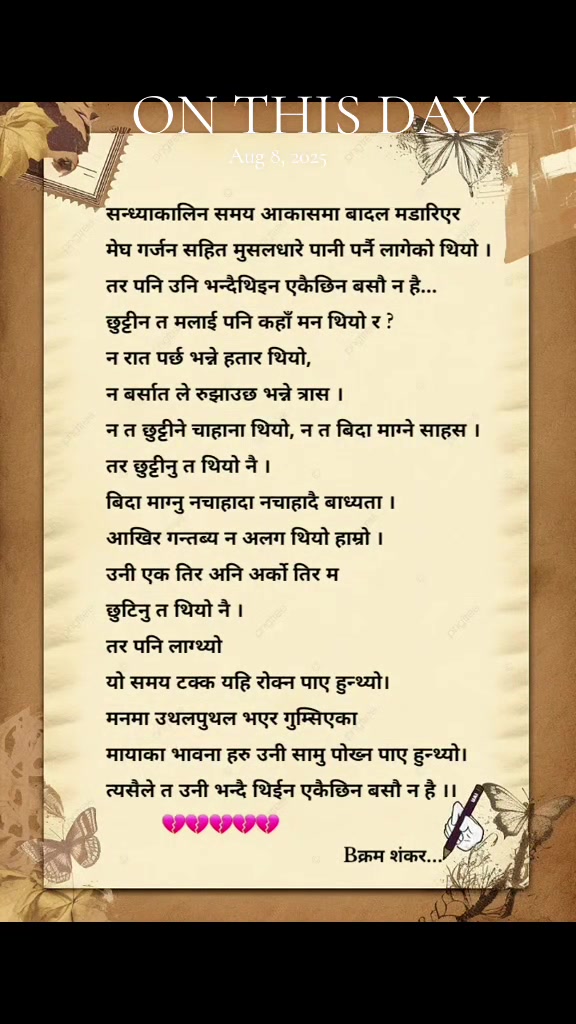 ON THIS DAY
Aug 8, 2025
सन्ध्याकालिन समय आकासमा बादल मडारिएर
मेघ गर्जन सहित मुसलधारे पानी पर्नै लागेको थियो ।
तर पनि उनि भन्दैथिइन एकैछिन बसौ न है...
छुट्टीन त मलाई पनि कहाँ मन थियो र ?
न रात पर्छ भन्ने हतार थियो,
न बर्सात ले रुझाउछ भन्ने त्रास ।
न त छुट्टीने चाहाना थियो, न त बिदा माग्ने साहस ।
तर छुट्टीनु त थियो नै ।
बिदा माग्नु नचाहादा नचाहादै बाध्यता ।
आखिर गन्तब्य न अलग थियो हाम्रो ।
उनी एक तिर अनि अर्को तिर म
छुटिनु त थियो नै ।
तर पनि लाग्थ्यो
यो समय टक्क यहि रोक्न पाए हुन्थ्यो।
मनमा उथलपुथल भएर गुम्सिएका
मायाका भावना हरु उनी सामु पोख्न पाए हुन्थ्यो।
त्यसैले त उनी भन्दै थिईन एकैछिन बसौ न है ।।
💔💔💔💔💔
Bक्रम शंकर...